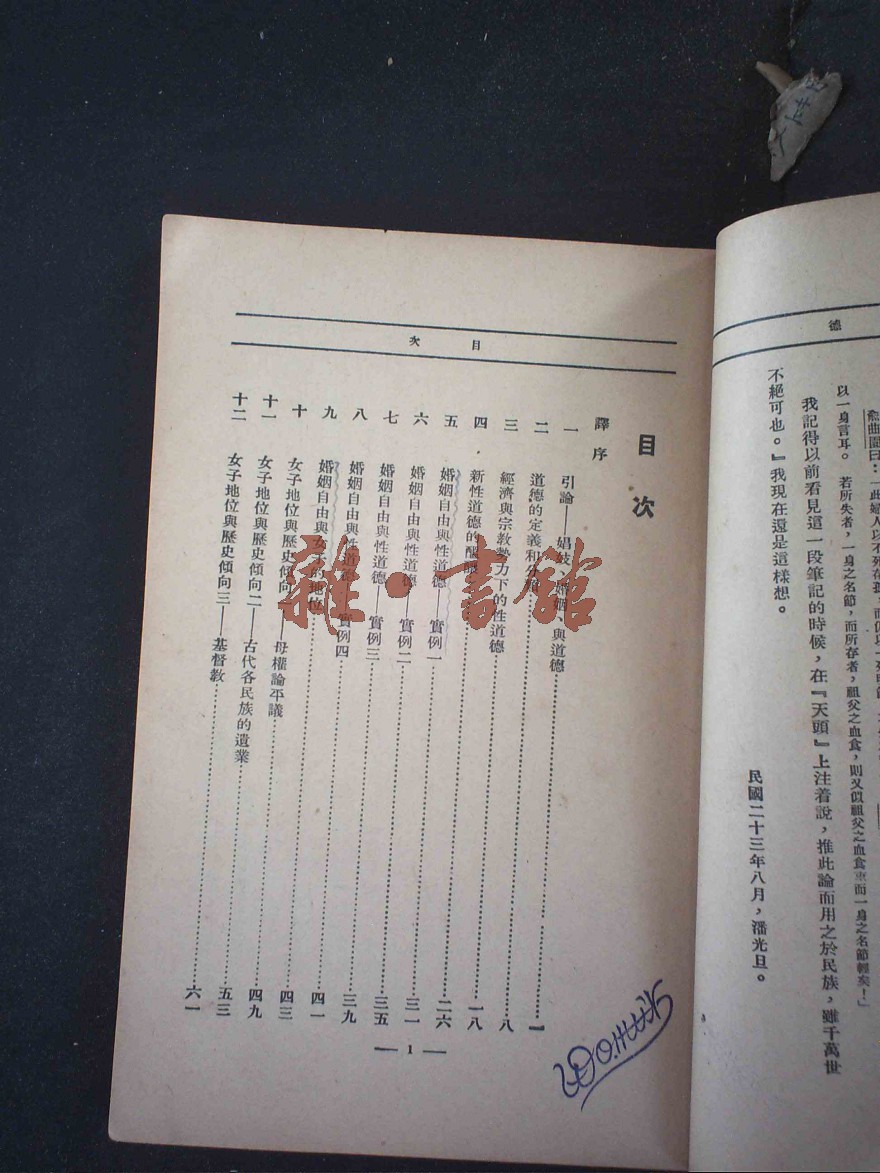 德
曲園曰：『此婦人以不死存孤，而仍以一死明節
以一身言耳。若所失者，一身之名節，而所存者，祖父之血食，則又似祖父之血食重而一身之名節輕矣！」
我記得以前看見這一段筆記的時候，在『天頭』上注着說，推此論而用之於民族，雖千萬世
不絕可也。』我現在還是這樣想。
民國二十三年八月，潘光旦。
目次
目次
譯序
一 引論——娼妓、婚姻、與道德 一
二 道德的定義和 八
三 經濟與宗教勢力下的性道德 一八
四 新性道德的 二六
五 婚姻自由與性道德——實例一 三一
六 婚姻自由與性道德——實例二 三五
七 婚姻自由與性道德——實例三 三九
八 婚姻自由與性道德——實例四 四一
九 婚姻自由與女子的地位 四三
十 女子地位與歷史傾向一——母權論平議 四九
十一 女子地位與歷史傾向二——古代各民族的遺業 五三
十二 女子地位與歷史傾向三——基督教 六一
— 1 —
雜·書館